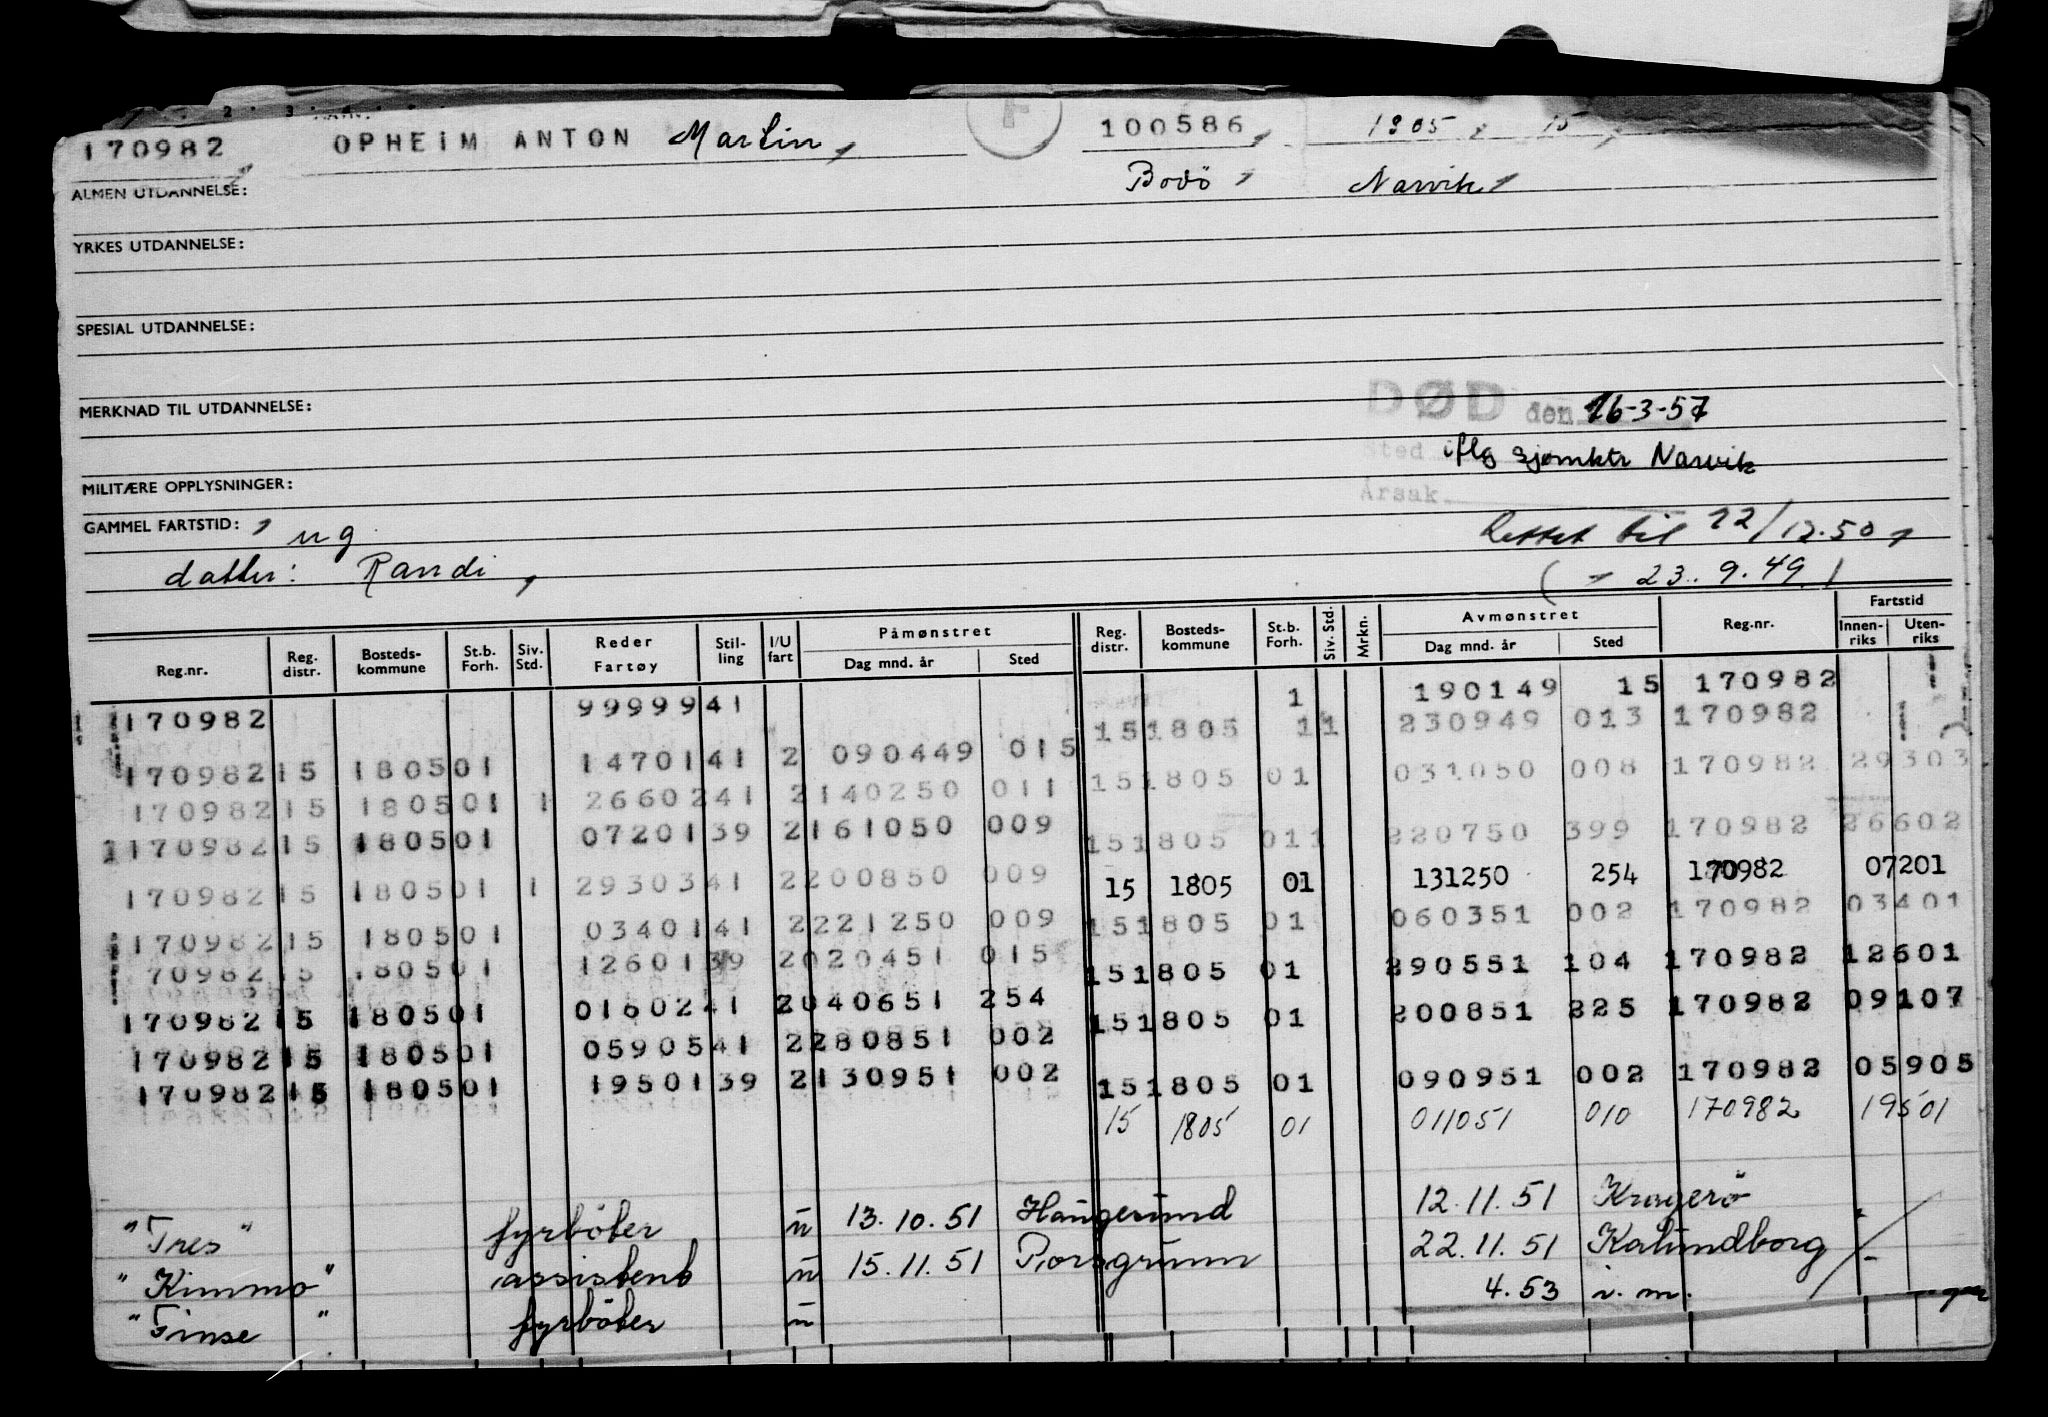 170982 OPHEIM ANTON Martin 100586 1905 15
Bodö Narvik
ALMEN UTDANNELSE:
YRKES UTDANNELSE:
SPESIAL UTDANNELSE:
MERKNAD TIL UTDANNELSE:
DØD den 16-3-57
Sted iflg sjømktr Narvik
MILITÆRE OPPLYSNINGER:
Årsak
GAMMEL FARTSTID: ug
Rettet til 22/12.50
datter: Randi
( " 23.9.49 )
Reg.nr. Reg. distr. Bosteds-kommune St.b. Forh. Siv. Std. Reder Fartøy Stil-ling I/U fart Påmønstret Dag mnd. år Sted Reg. distr. Bosteds-kommune St.b. Forh. Siv. Std. Mrkn. Avmønstret Dag mnd. år Sted Reg.nr. Fartstid Innen-riks Uten-riks
170982 99999 41 1 190149 15 170982
15 1805 1 1 230949 013 170982
170982 15 1805 01 14701 41 2 090449 015
15 1805 01 031050 008 170982 29303
170982 15 1805 01 1 26602 41 2 140250 011
170982 15 1805 01 07201 39 2 161050 009
15 1805 01 1 220750 399 170982 26602
170982 15 1805 01 1 29303 41 2 200850 009
15 1805 01 131250 254 170982 07201
170982 15 1805 01 03401 41 2 221250 009
15 1805 01 060351 002 170982 03401
70982 15 1805 01 12601 39 2 020451 015
15 1805 01 290551 104 170982 12601
170982 15 1805 01 01602 41 2 040651 254
15 1805 01 200851 225 170982 09107
170982 15 1805 01 05905 41 2 280851 002
170982 15 1805 01 19501 39 2 130951 002
15 1805 01 090951 002 170982 05905
15 1805 01 011051 010 170982 19501
"Tres" fyrböter u 13.10.51 Haugesund 12.11.51 Kragerö
"Kimmo" assistent u 15.11.51 Porsgrunn 22.11.51 Kalundborg
"Finse" fyrböter u 4.53 i.m.